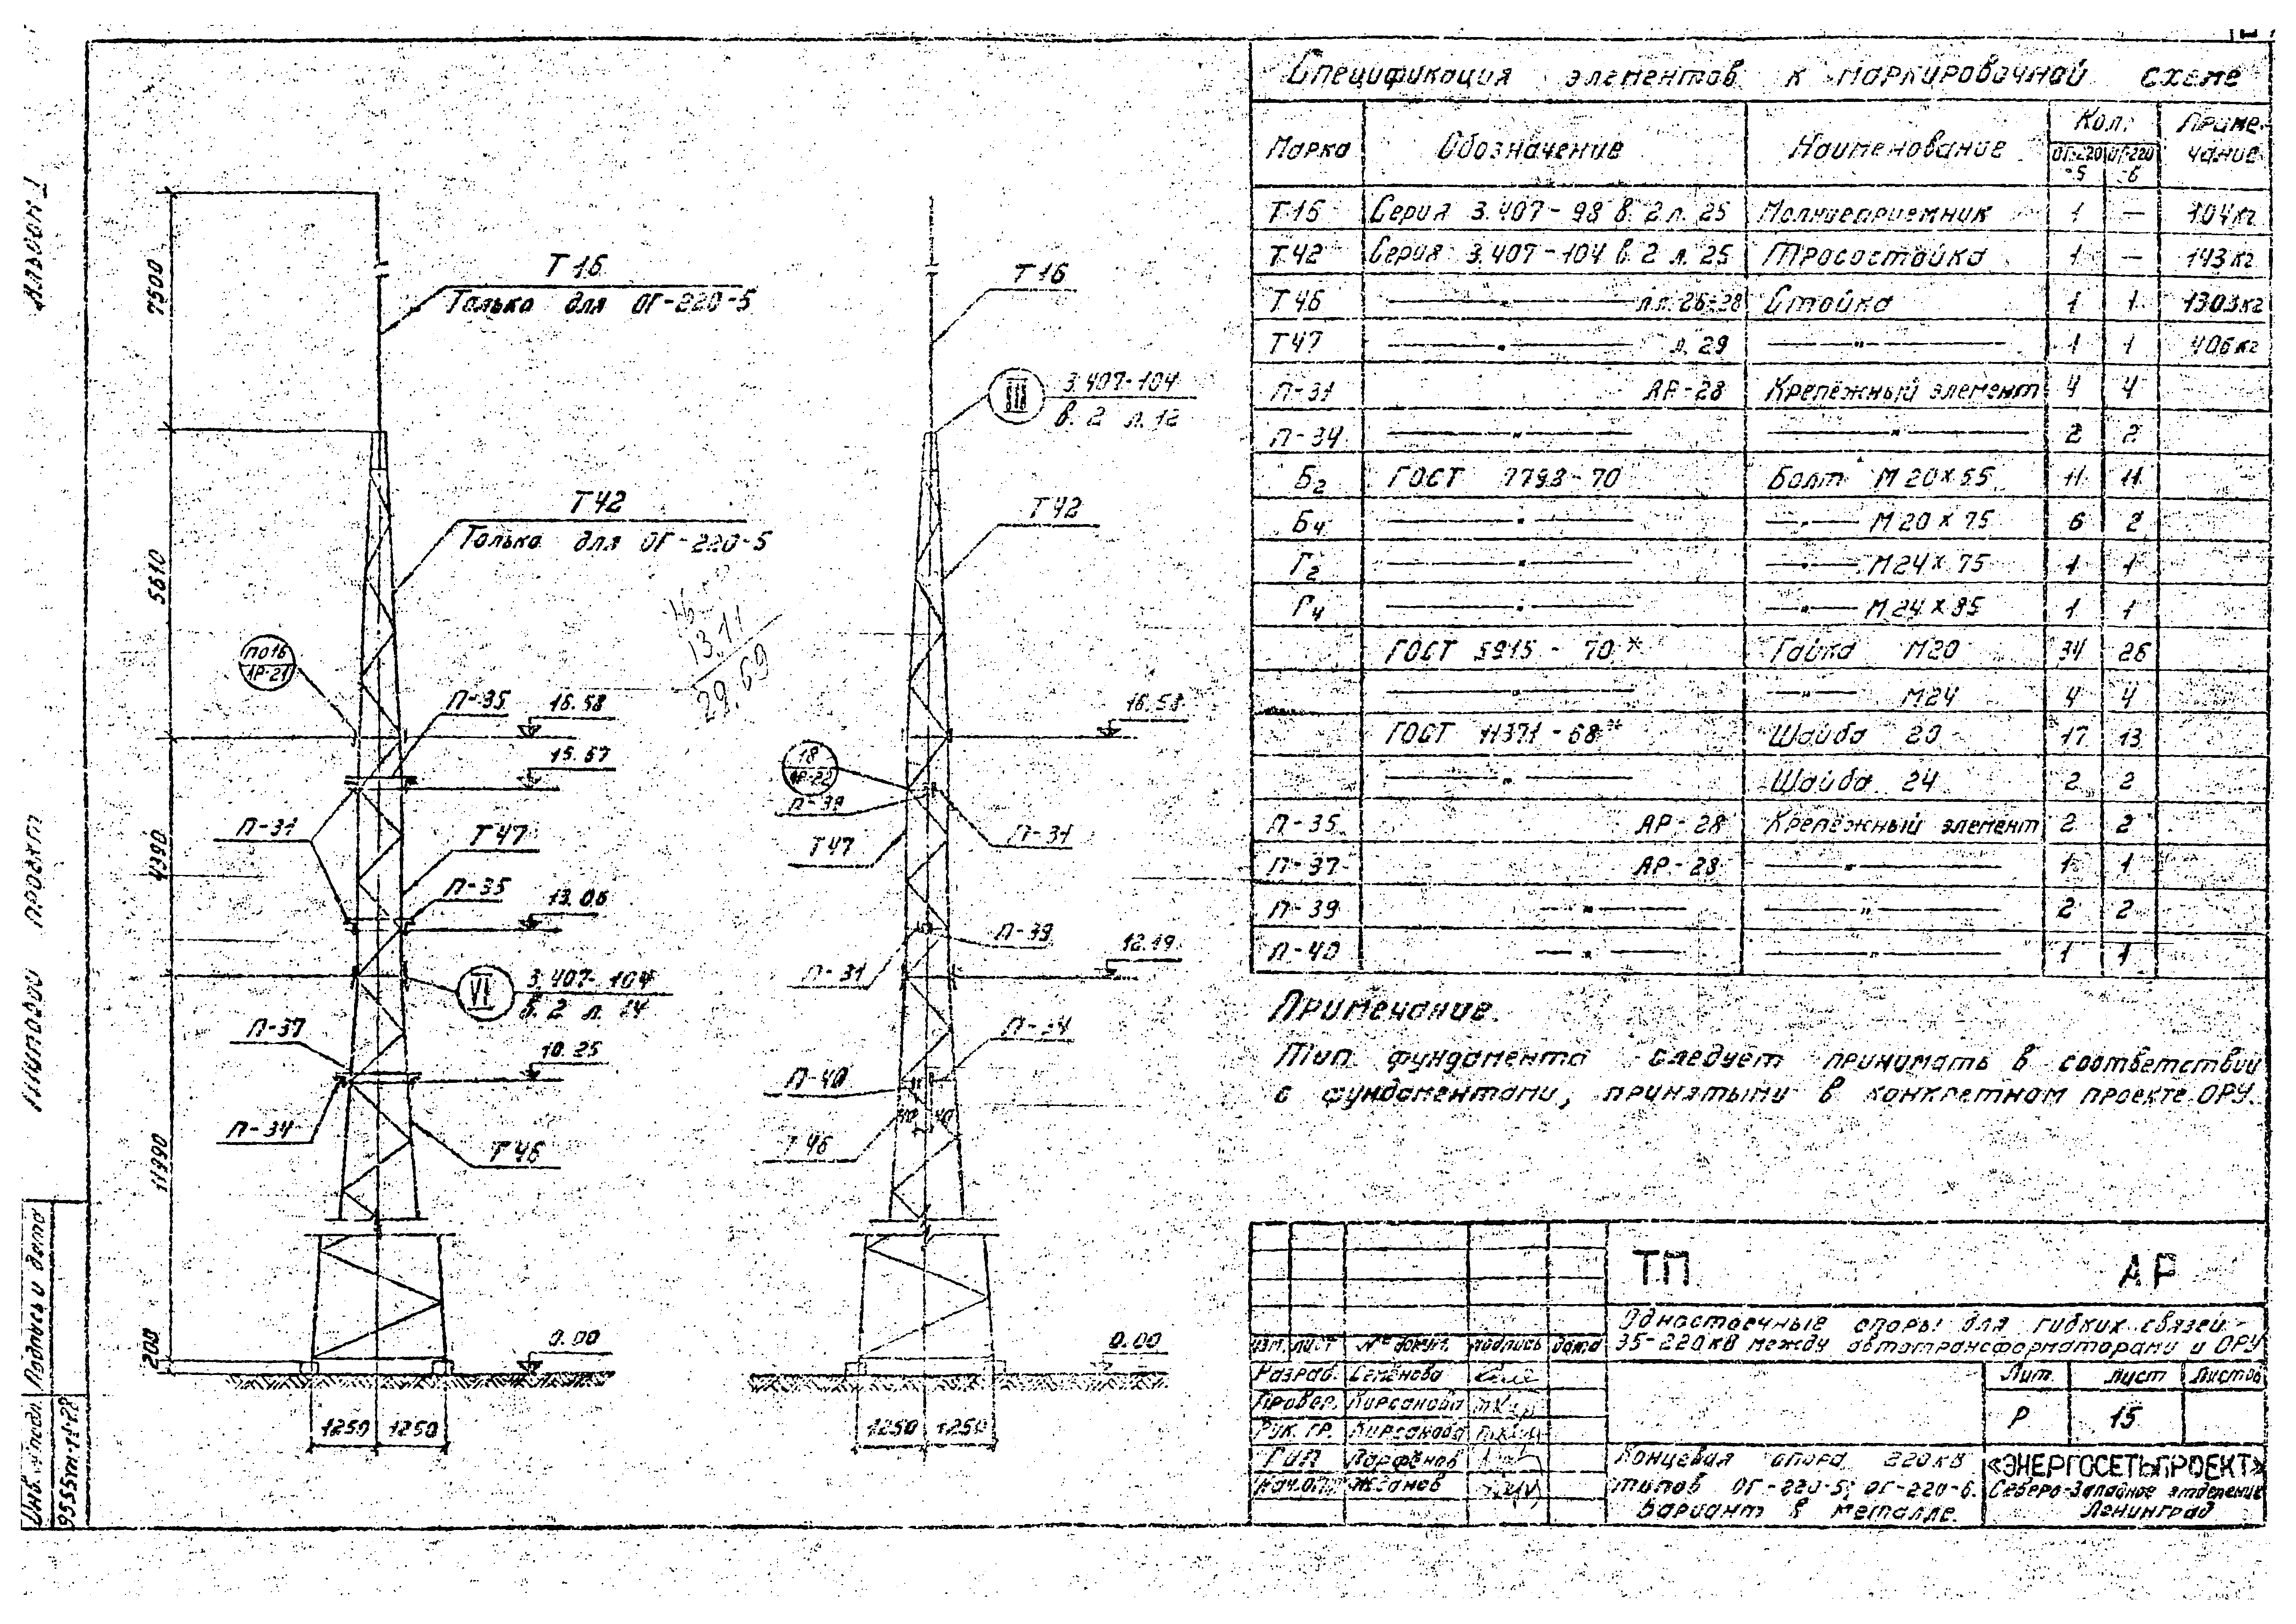 Альбом I
Типовой проект
Подпись и дата
Инв. № подл.
7500
5610
4390
11990
200
Т16
Только для ОГ-220-5
Т42
Только для ОГ-220-5
ПО16
АР-21
П-35
16.58
15.57
П-31
Т47
П-35
13.06
VI
3.407-104
в. 2 л. 14
П-37
10.25
П-34
Т46
0.00
1250 1250
13.11
29.69
Т16
III
3.407-104
в. 2 л. 12
Т42
16.58
18
АР-22
П-39
Т47
П-31
П-39
12.19
П-31
П-34
П-40
40 40
Т46
0.00
1250 1250
Спецификация элементов к маркировочной схеме
Марка Обозначение Наименование Кол. Примечание
ОГ-220-5 ОГ-220-6
Т16 Серия 3.407-98 в. 2 л. 25 Молниеприемник 1 — 104кг
Т42 Серия 3.407-104 в. 2 л. 25 Тросостойка 1 — 143кг
Т46 —"— л.л. 26÷28 Стойка 1 1 1303кг
Т47 —"— л. 29 —"— 1 1 406кг
П-31 АР-28 Крепёжный элемент 4 4
П-34 —"— —"— 2 2
Б2 ГОСТ 7798-70 Болт М20×55 11 11
Б4 —"— —"— М20×75 6 2
Г2 —"— —"— М24×75 1 1
Г4 —"— —"— М24×85 1 1
ГОСТ 5915-70* Гайка М20 34 26
—"— —"— М24 4 4
ГОСТ 11371-68* Шайба 20 17 13
—"— Шайба 24 2 2
П-35 АР-28 Крепёжный элемент 2 2
П-37 АР-28 —"— 1 1
П-39 —"— —"— 2 2
П-40 —"— —"— 1 1
Примечание.
Тип фундамента следует принимать в соответствии
с фундаментами, принятыми в конкретном проекте ОРУ.
ТП АР
Одностоечные опоры для гибких связей
35-220кВ между автотрансформаторами и ОРУ
Изм. Лист № докум. подпись дата
Разраб. Семёнова
Провер. Кирсанова
Рук. гр. Кирсанова
ГИП Парфёнов
Нач.от.
Лит. Лист Листов
Р 15
Концевая опора 220кВ
типов ОГ-220-5; ОГ-220-6.
Вариант в металле.
«ЭНЕРГОСЕТЬПРОЕКТ»
Северо-Западное отделение
Ленинград